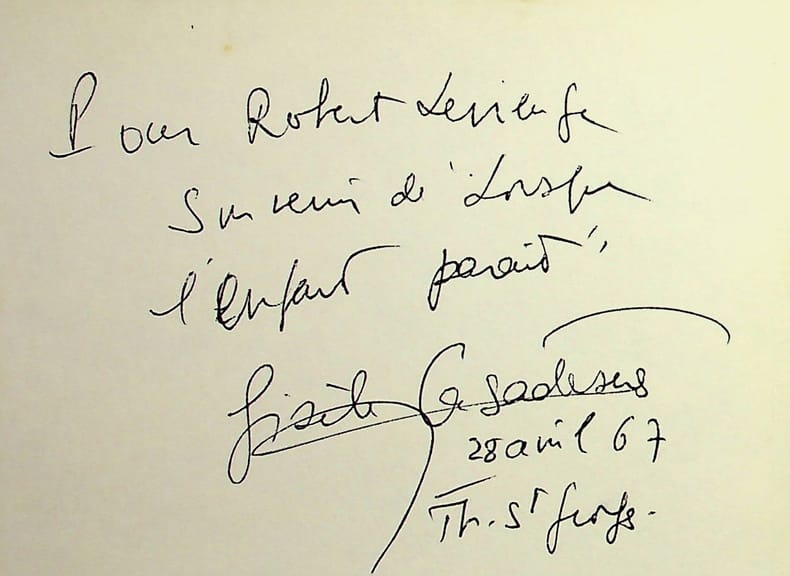 Pour Robert
Souvenir de "Lorsque
l'Enfant paraît"
Gisèle Casadesus
28 avril 67
Th. St Georges.